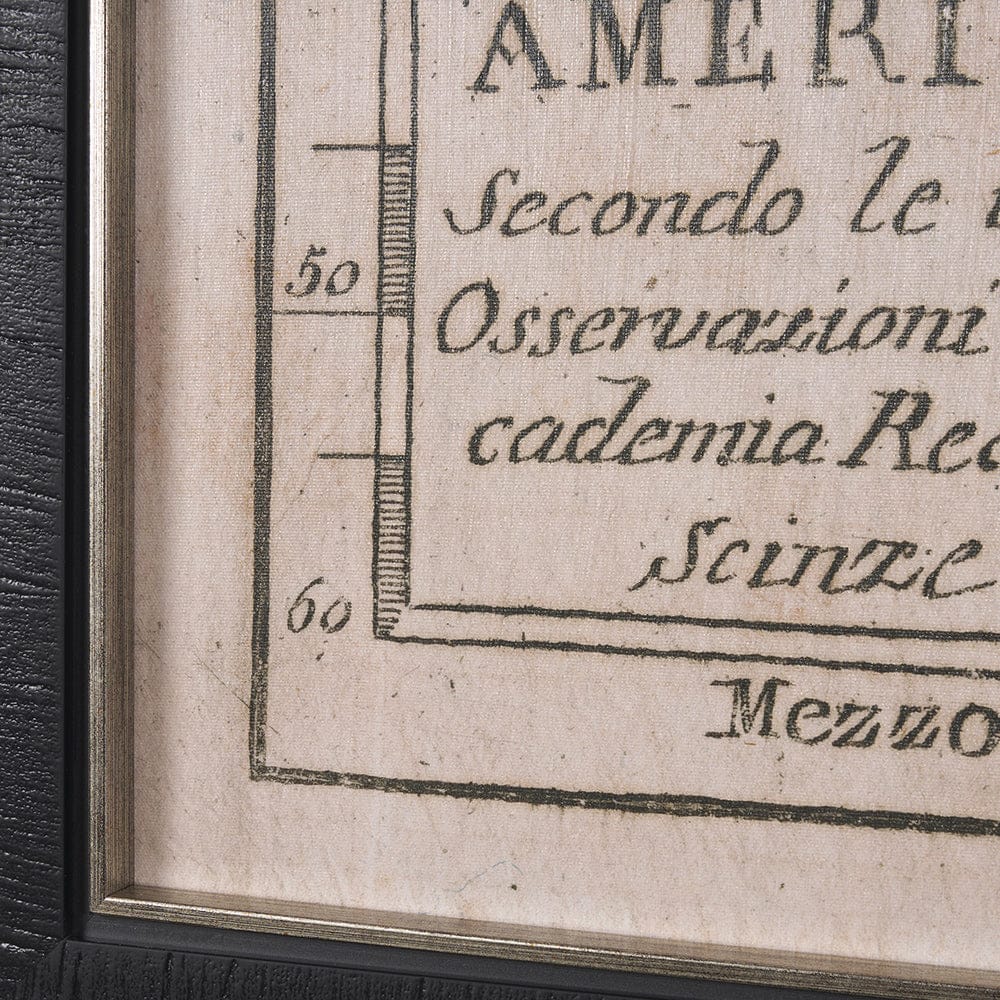 AMERI
Secondo le
Osservazioni
cademia Rea
Scinze
Mezzo
50
60